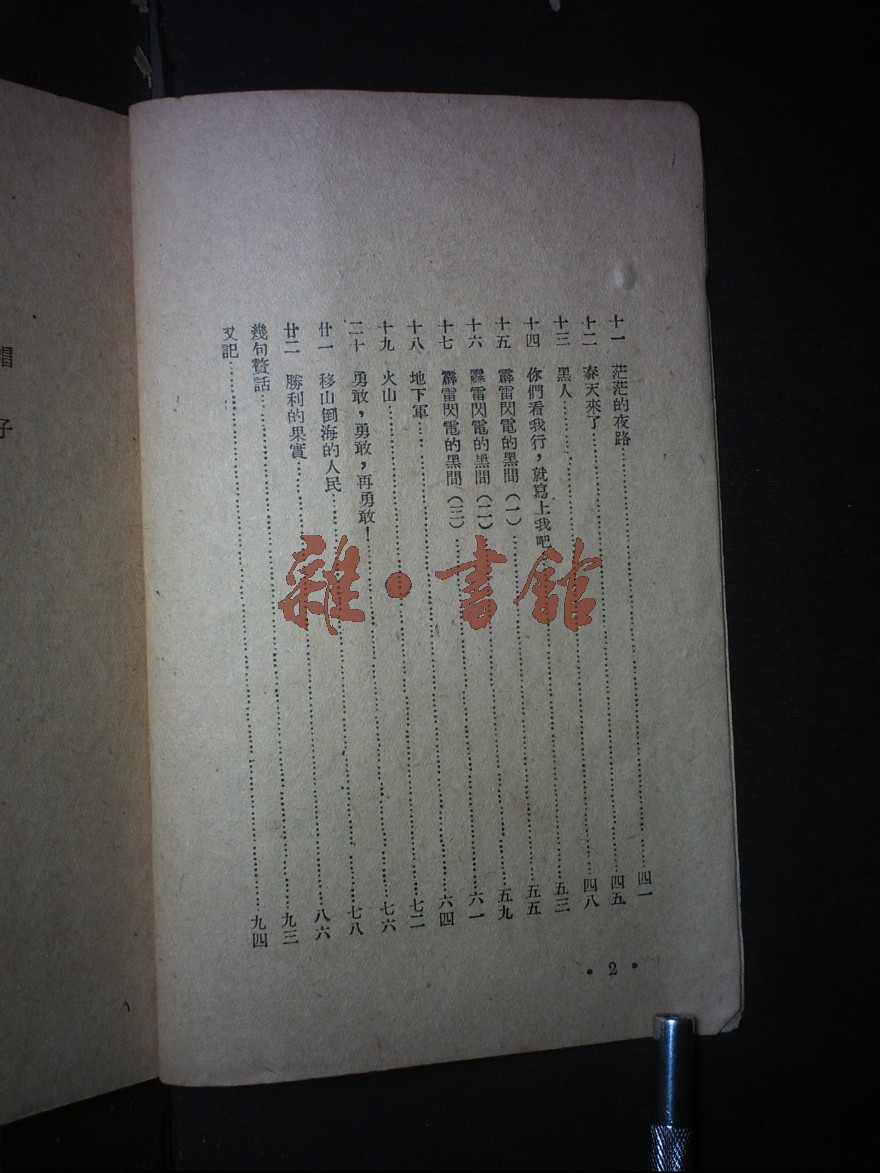 十一 茫茫的夜路……四一
十二 春天來了……四五
十三 黑人……四八
十四 你們看我行，就寫上我吧……五三
十五 霹雷閃電的黑間（一）……五五
十六 霹雷閃電的黑間（二）……五九
十七 霹雷閃電的黑間（三）……六一
十八 地下軍……六四
十九 火山……七二
二十 勇敢，勇敢，再勇敢！……七六
廿一 移山倒海的人民……七八
廿二 勝利的果實……八六
幾句贅話……九三
又記……九四
• 2 •
雜·書館
子